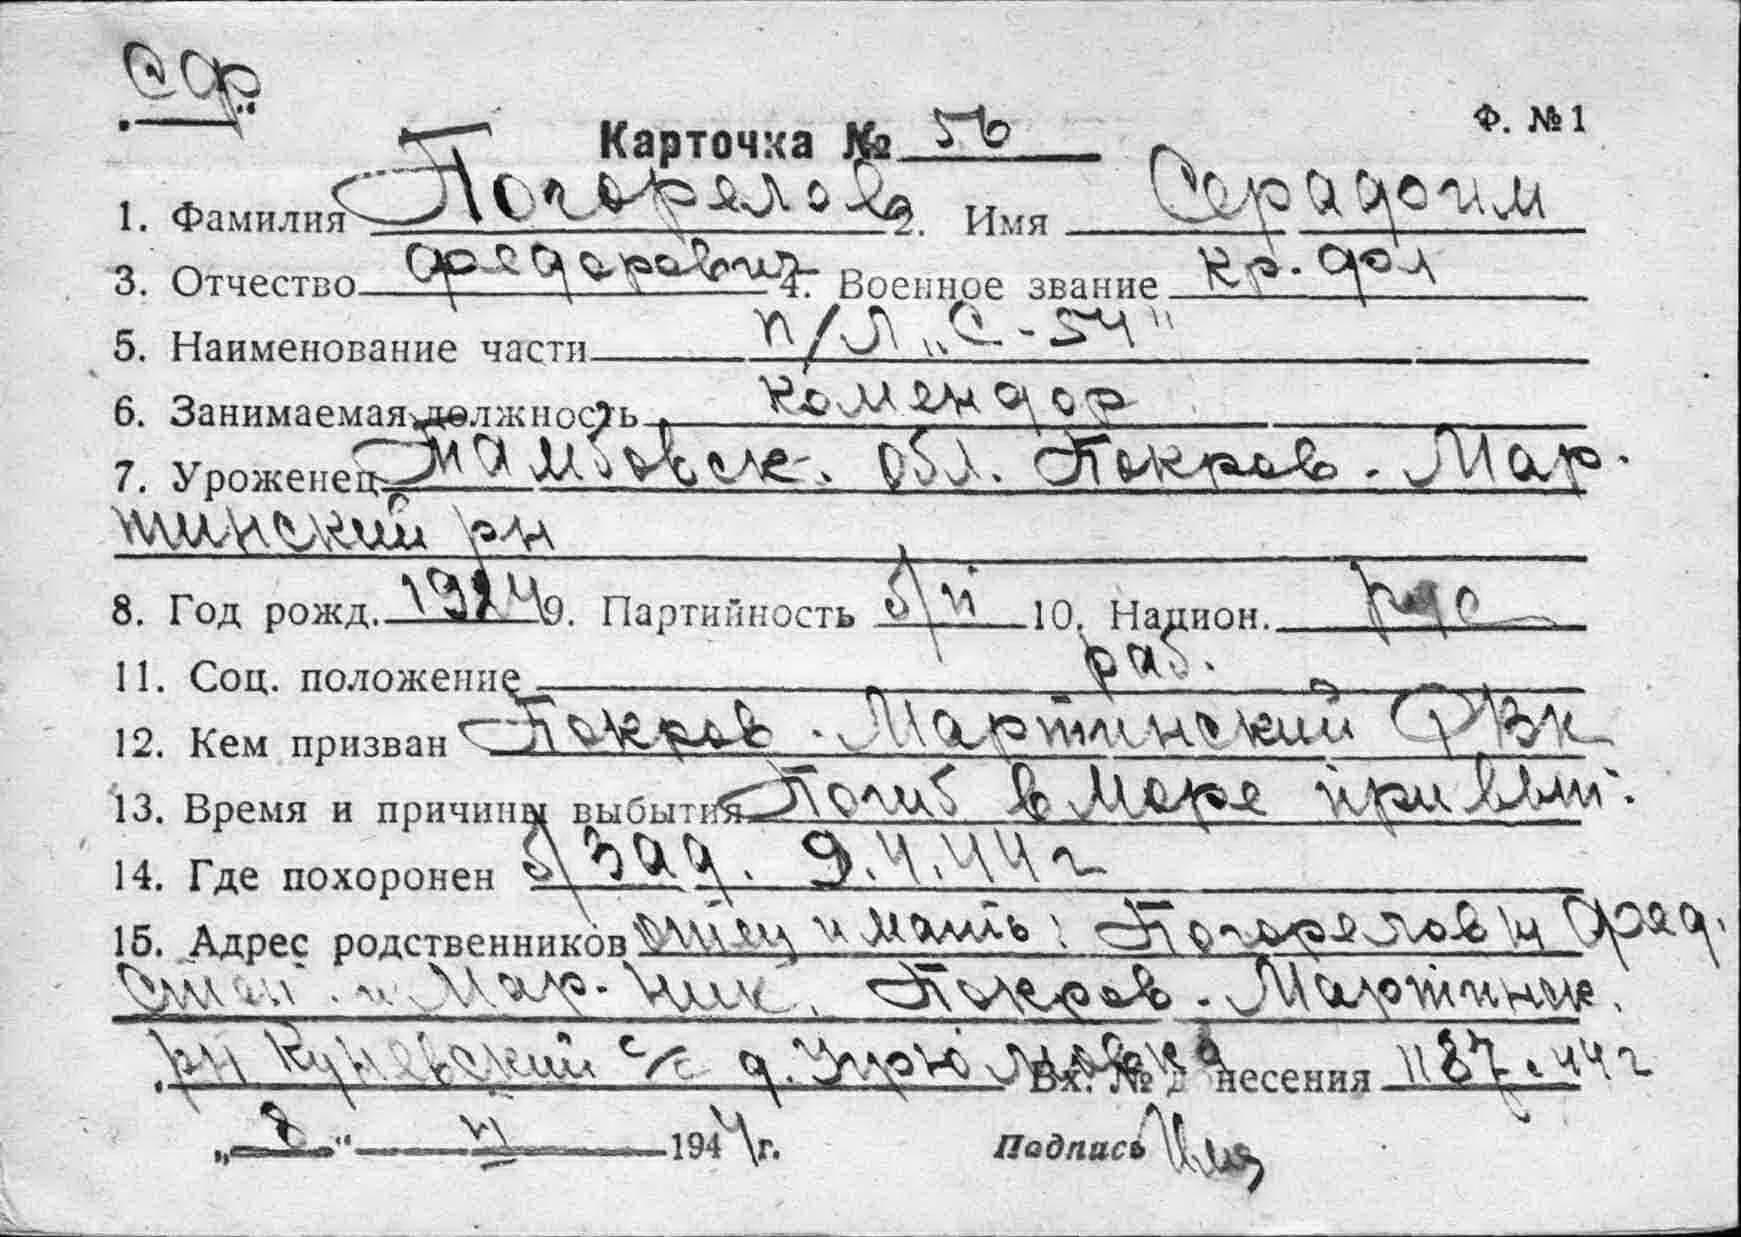 СФ
Ф. №1
Карточка № 56
1. Фамилия Погорелов 2. Имя Серафим
3. Отчество Федорович 4. Военное звание кр. фл
5. Наименование части п/л „С-54"
6. Занимаемая должность комендор
7. Уроженец Тамбовск. обл. Покров.-Мар-
тинский рн
8. Год рожд. 1924 9. Партийность б/п 10. Национ. рус
11. Соц. положение раб.
12. Кем призван Покров.-Мартинский РВК
13. Время и причины выбытия Погиб в море при вып.
14. Где похоронен б/зад. 9.4.44 г
15. Адрес родственников отец и мать: Погорелов Фед.
Степ. и Мар. Ник. Покров.-Мартинск.
рн Куневский с/с д. Вх. № донесения 1187. 44 г
„8" VI 1944 г. Подпись